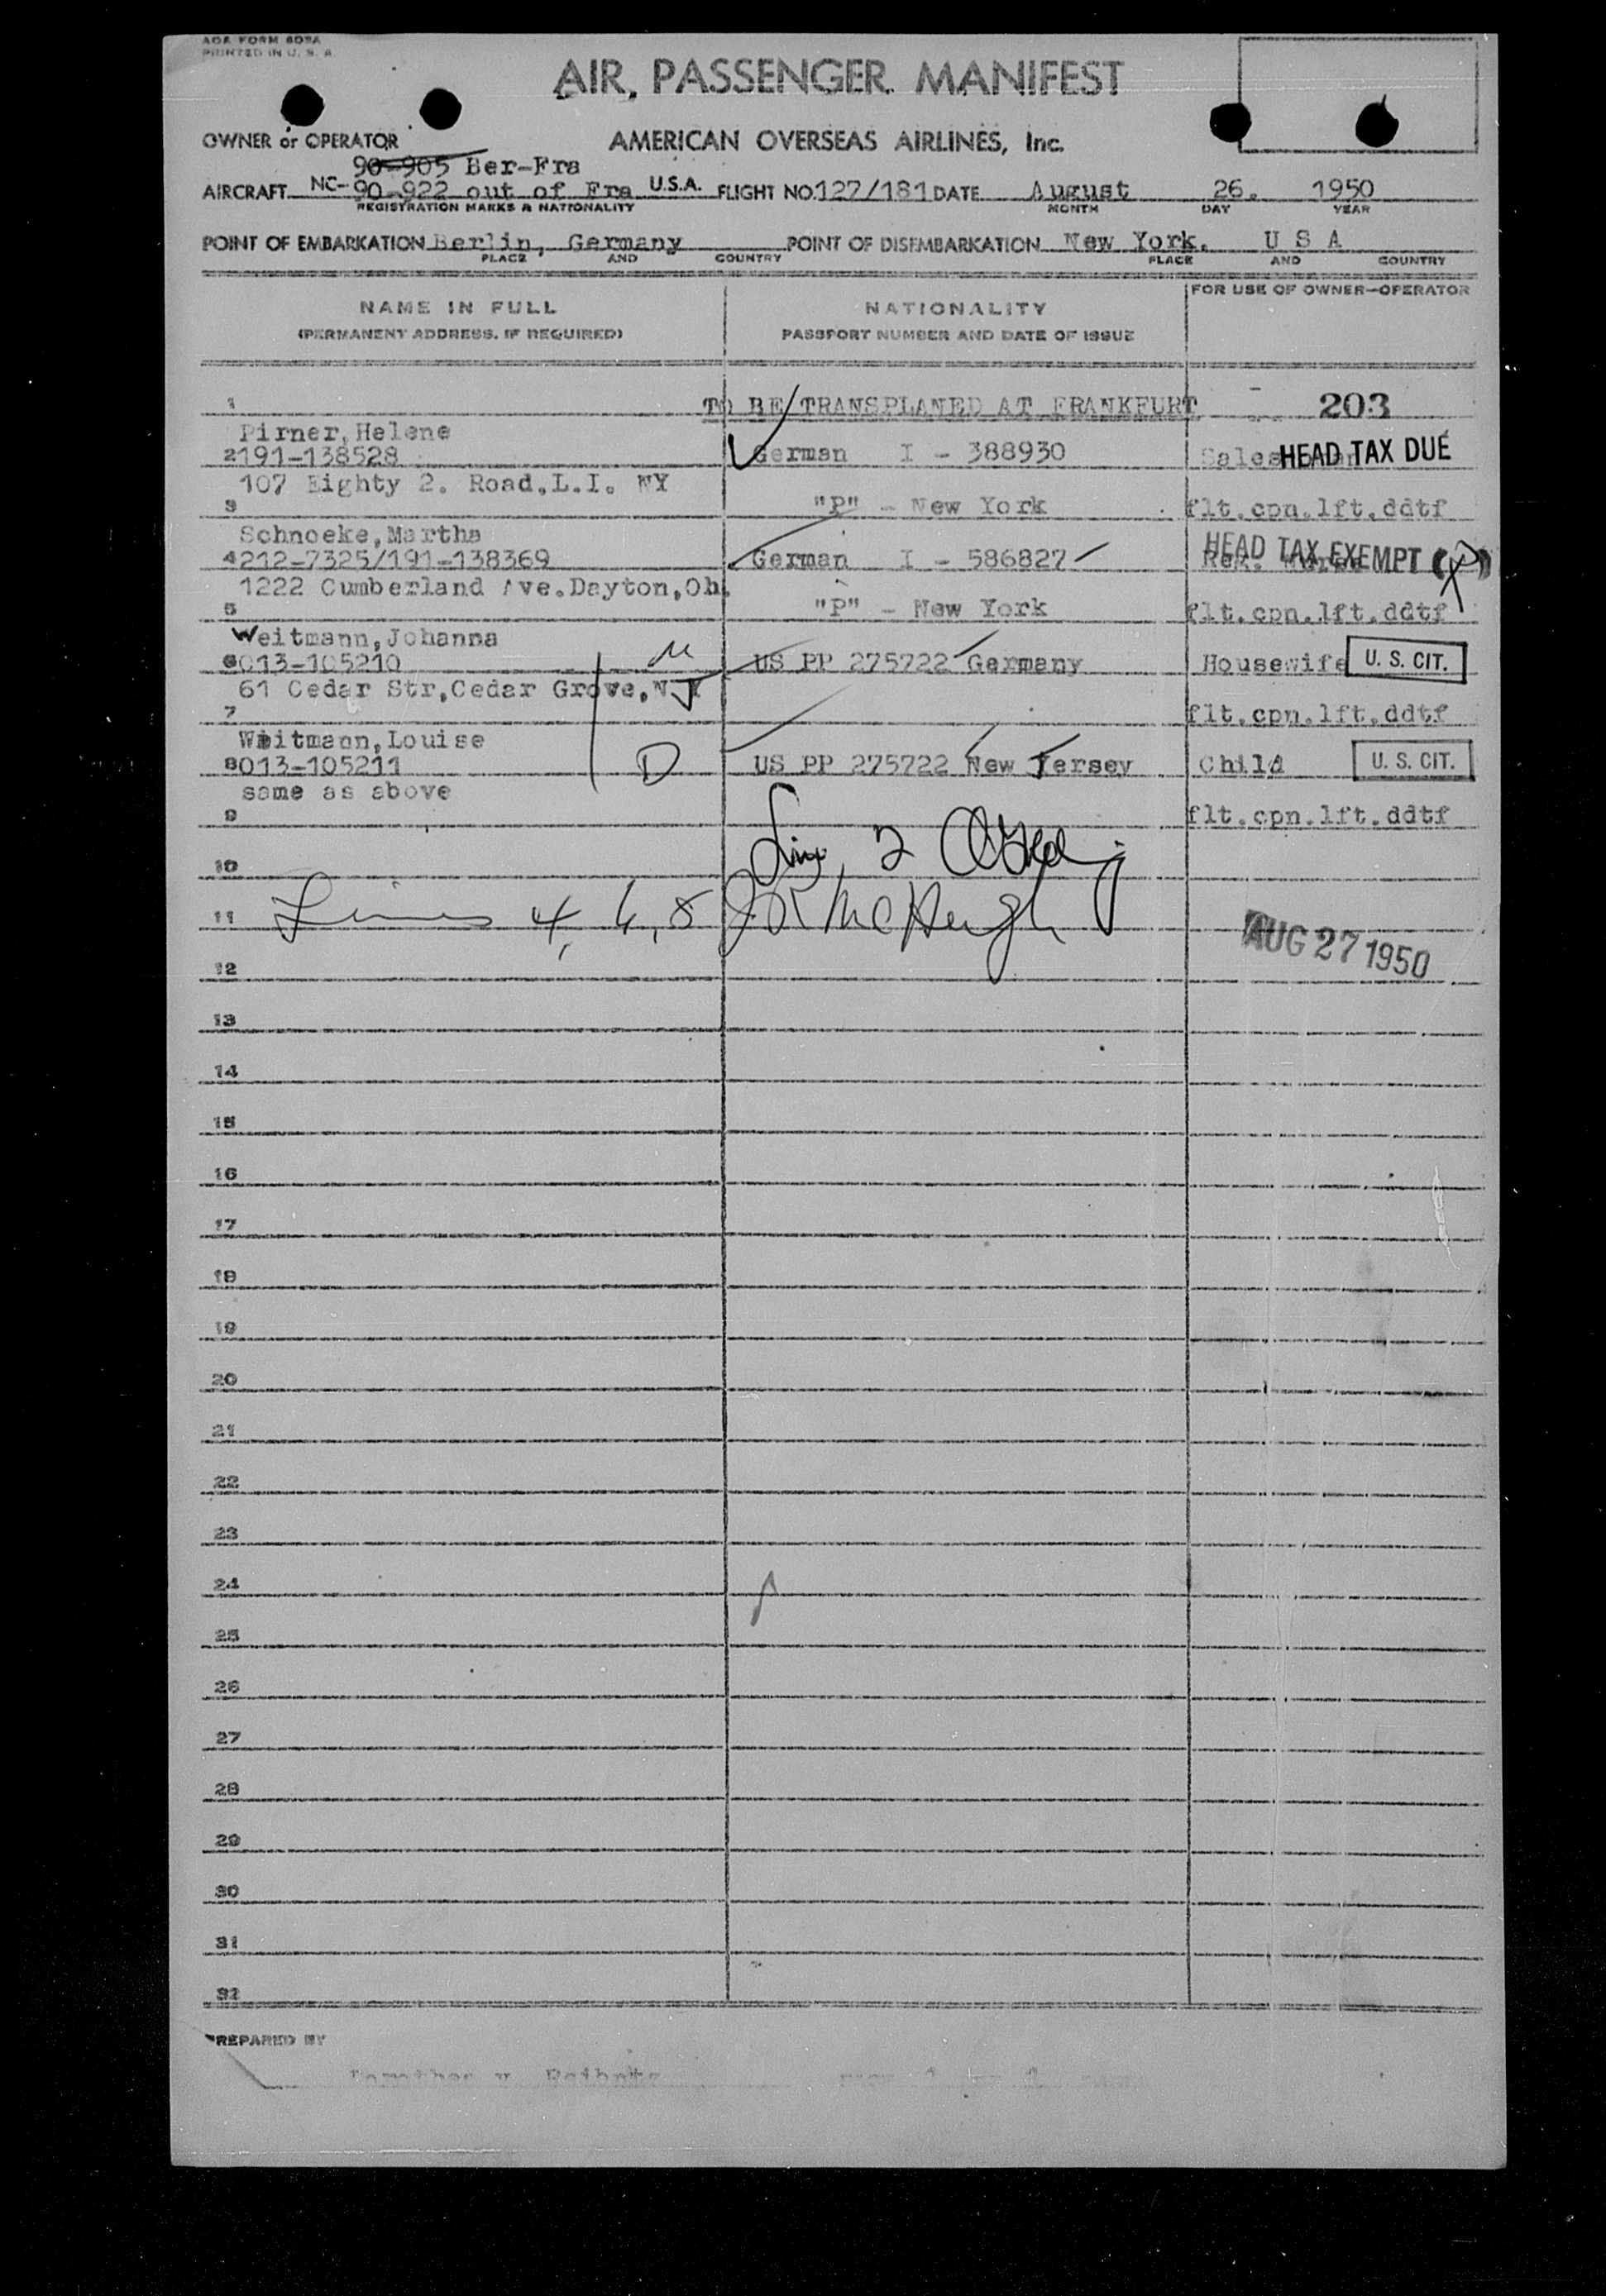 AOA FORM 609A
PRINTED IN U. S. A.
AIR PASSENGER MANIFEST
OWNER or OPERATOR AMERICAN OVERSEAS AIRLINES, Inc.
90-905 Ber-Fra
AIRCRAFT NC-90-922 out of Fra U.S.A. FLIGHT NO. 127/181 DATE August 26. 1950
REGISTRATION MARKS & NATIONALITY MONTH DAY YEAR
POINT OF EMBARKATION Berlin, Germany POINT OF DISEMBARKATION New York. U S A
PLACE AND COUNTRY PLACE AND COUNTRY
NAME IN FULL NATIONALITY FOR USE OF OWNER-OPERATOR
(PERMANENT ADDRESS, IF REQUIRED) PASSPORT NUMBER AND DATE OF ISSUE
1 TO BE TRANSPLANED AT FRANKFURT 203
Pirner, Helene
2 191-138528 German I - 388930 HEAD TAX DUE
107 Eighty 2. Road, L.I. NY
3 "P" - New York flt.cpn.lft.ddtf
Schnoeke, Martha
4 212-7325/191-138369 German I - 586827 HEAD TAX EXEMPT
1222 Cumberland Ave. Dayton, Oh.
5 "P" - New York flt.cpn.lft.ddtf
Weitmann, Johanna M
6 013-105210 US PP 275722 Germany Housewife U. S. CIT.
61 Cedar Str, Cedar Grove, N.J
7 flt.cpn.lft.ddtf
Weitmann, Louise
8 013-105211 D US PP 275722 New Jersey Child U. S. CIT.
same as above
9 flt.cpn.lft.ddtf
10 2
11 Lines 4, 6, 8 McHugh
AUG 27 1950
12
13
14
15
16
17
18
19
20
21
22
23
24
25
26
27
28
29
30
31
32
PREPARED BY